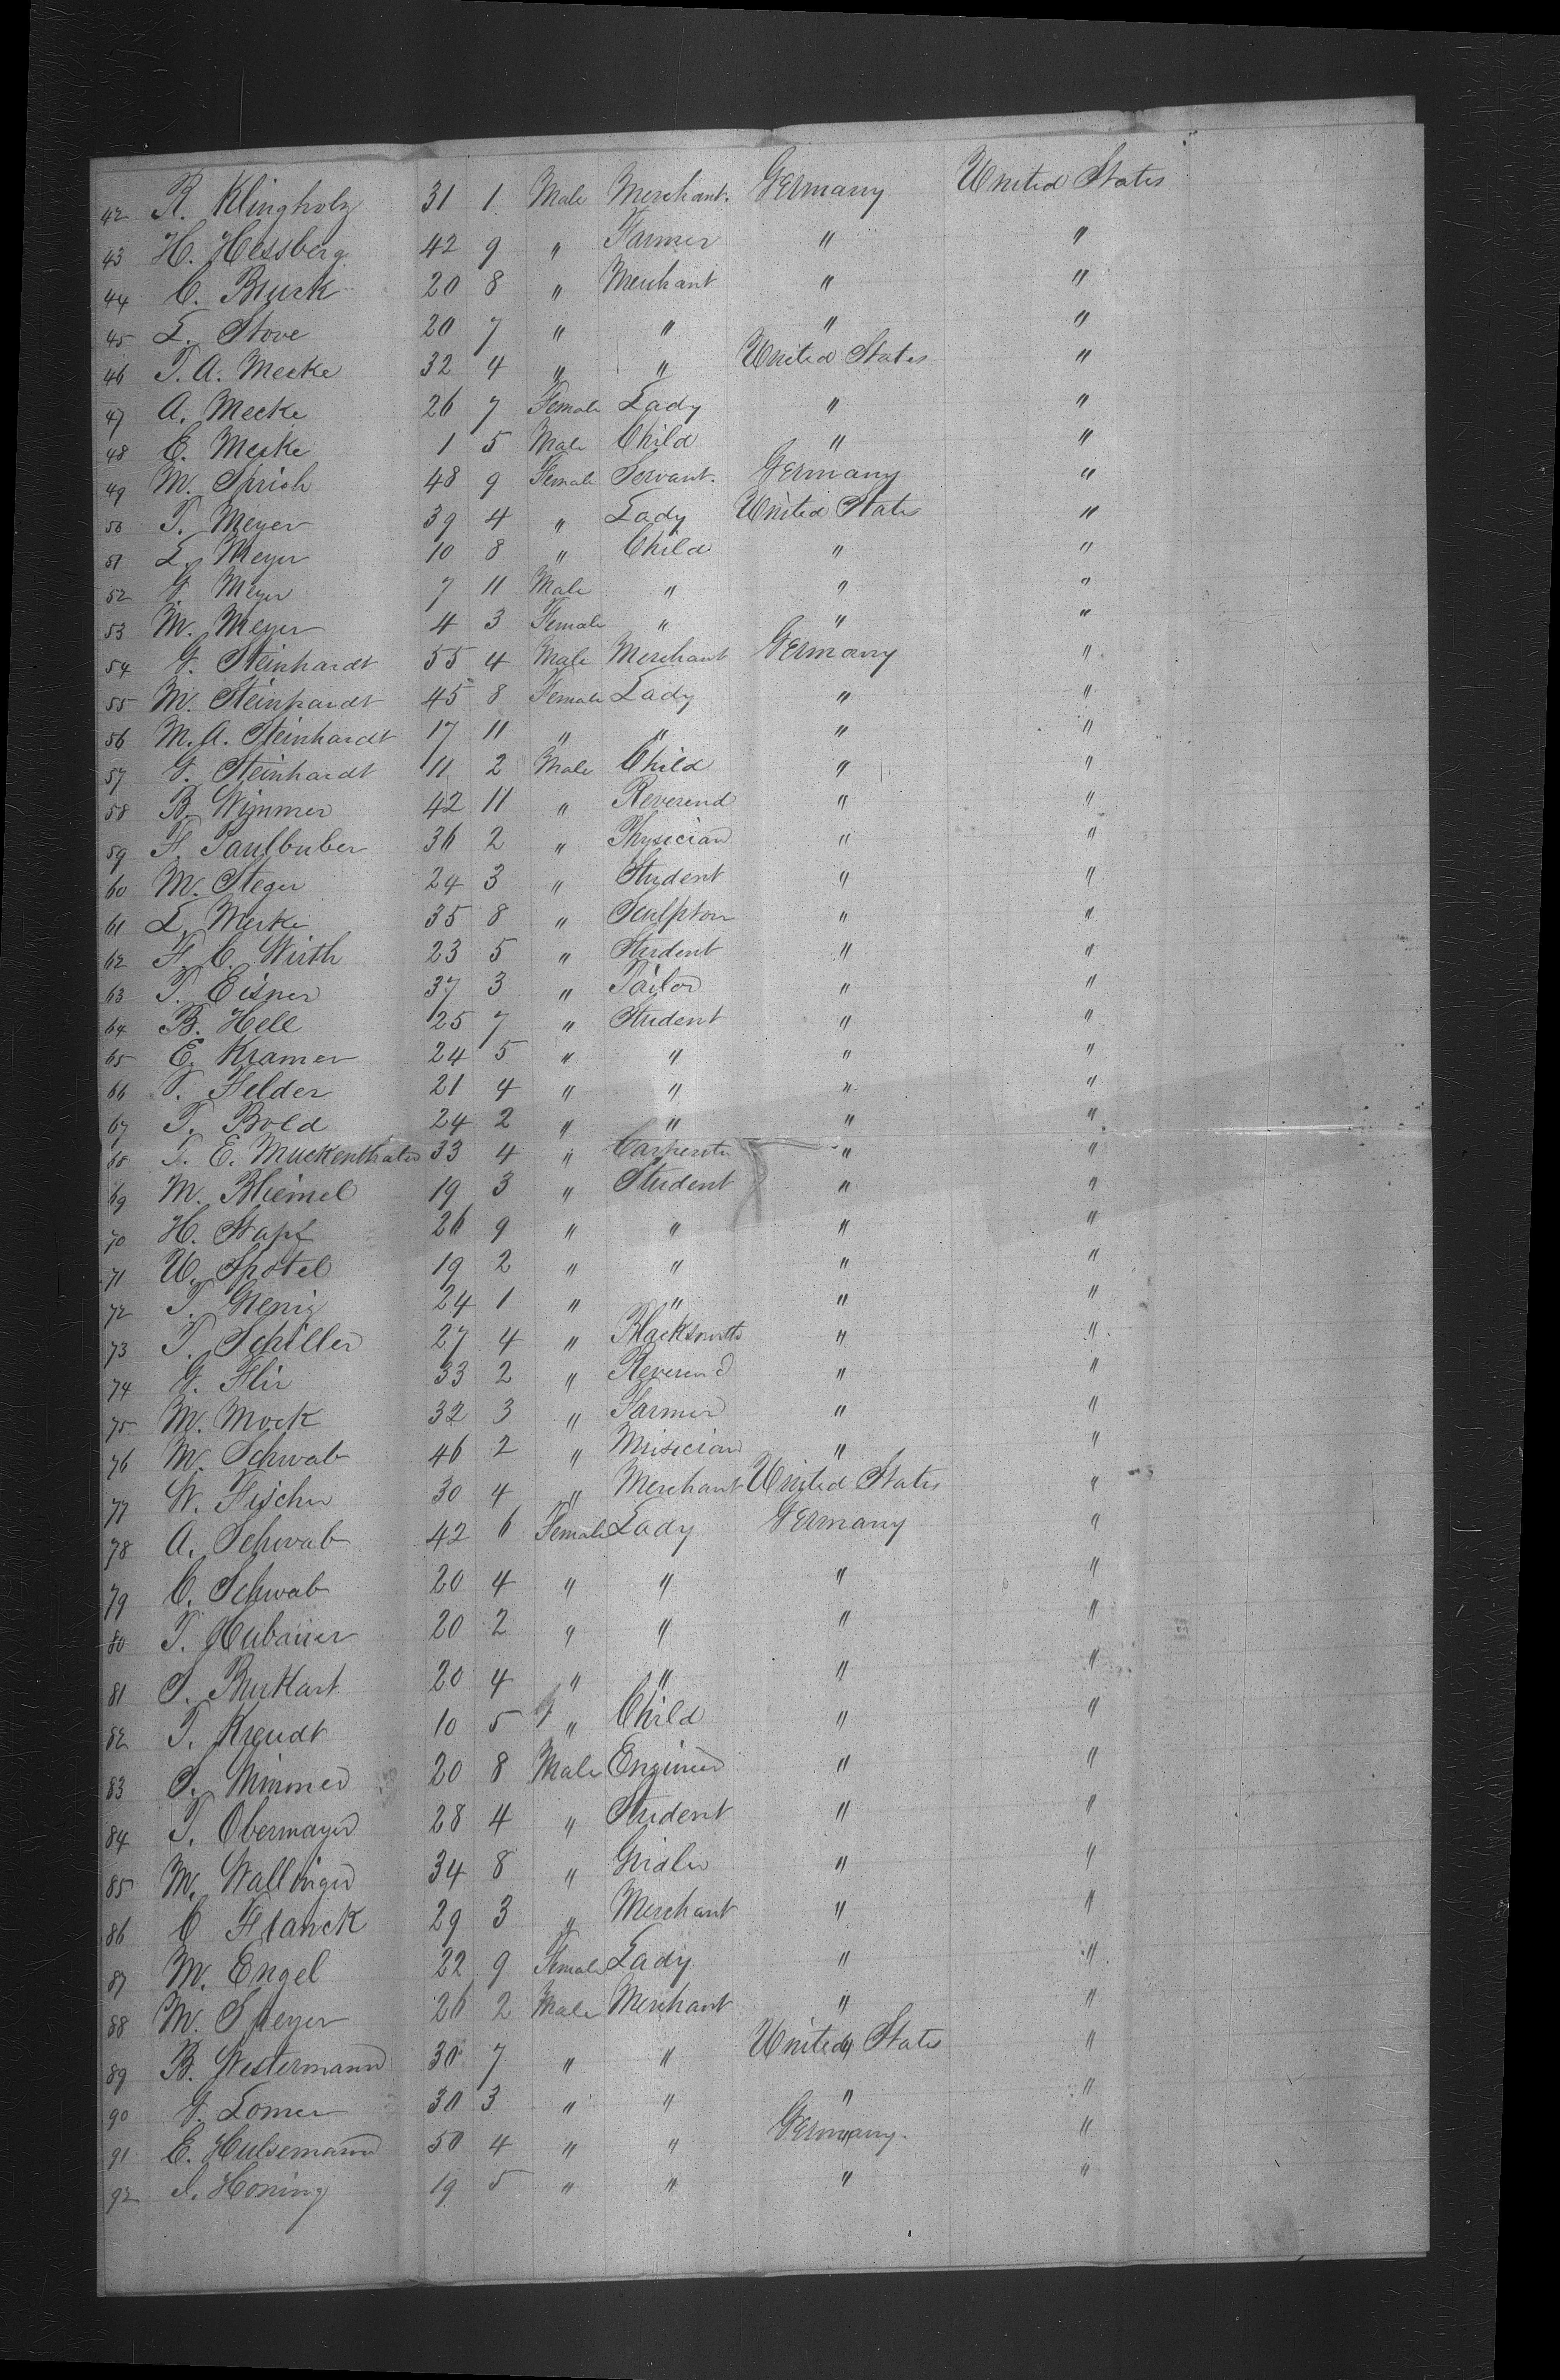 42 R. Klingholz 31 1 Male Merchant. Germany United States
43 H. Hessberg 42 9 " Farmer " "
44 C. Bruck 20 8 " Merchant " "
45 L. Stove 20 7 " " " "
46 T. A. Mecke 32 4 " " United States "
47 A. Mecke 26 7 Female Lady " "
48 E. Mecke 1 5 Male Child " "
49 M. Sprich 48 9 Female Servant. Germany "
50 T. Meyer 39 4 " Lady United States "
51 L. Meyer 10 8 " Child " "
52 G. Meyer 7 11 Male " " "
53 M. Meyer 4 3 Female " " "
54 G. Steinhardt 55 4 Male Merchant Germany "
55 M. Steinhardt 45 8 Female Lady " "
56 M. A. Steinhardt 17 11 " " " "
57 G. Steinhardt 11 2 Male Child " "
58 B. Wimmer 42 11 " Reverend " "
59 F. Paulbuber 36 2 " Physician " "
60 M. Steger 24 3 " Student " "
61 L. Merke 35 8 " Sculptor " "
62 F. C. Wirth 23 5 " Student " "
63 T. Eisner 37 3 " Tailor " "
64 B. Hell 25 7 " Student " "
65 E. Kramer 24 5 " " " "
66 T. Felder 21 4 " " " "
67 T. Bold 24 2 " " " "
68 T. E. Muckenthaler 33 4 " Carpenter " "
69 M. Bliemel 19 3 " Student " "
70 H. Stapf 26 9 " " " "
71 U. Spotel 19 2 " " " "
72 T. 24 1 " " " "
73 T. Schiller 27 4 " Blacksmith " "
74 G. Flir 33 2 " Reverend " "
75 M. Mock 32 3 " Farmer " "
76 M. Schwab 46 2 " Musician " "
77 W. Fischer 30 4 " Merchant United States "
78 A. Schwab 42 6 Female Lady Germany "
79 C. Schwab 20 4 " " " "
80 T. Hubauer 20 2 " " " "
81 S. Burkart 20 4 " " " "
82 T. Kreudt 10 5 " Child " "
83 S. Wimmer 20 8 Male Engineer " "
84 T. Obermayer 28 4 " Student " "
85 M. Wallinger 34 8 " Girdler " "
86 C Flanck 29 3 " Merchant " "
87 M. Engel 22 9 Female Lady " "
88 M. Speyer 26 2 Male Merchant " "
89 B. Westermann 30 7 " " United States "
90 G. Lomer 30 3 " " " "
91 E. Hulsemann 50 4 " " Germany. "
92 I. Honing 19 5 " " " "